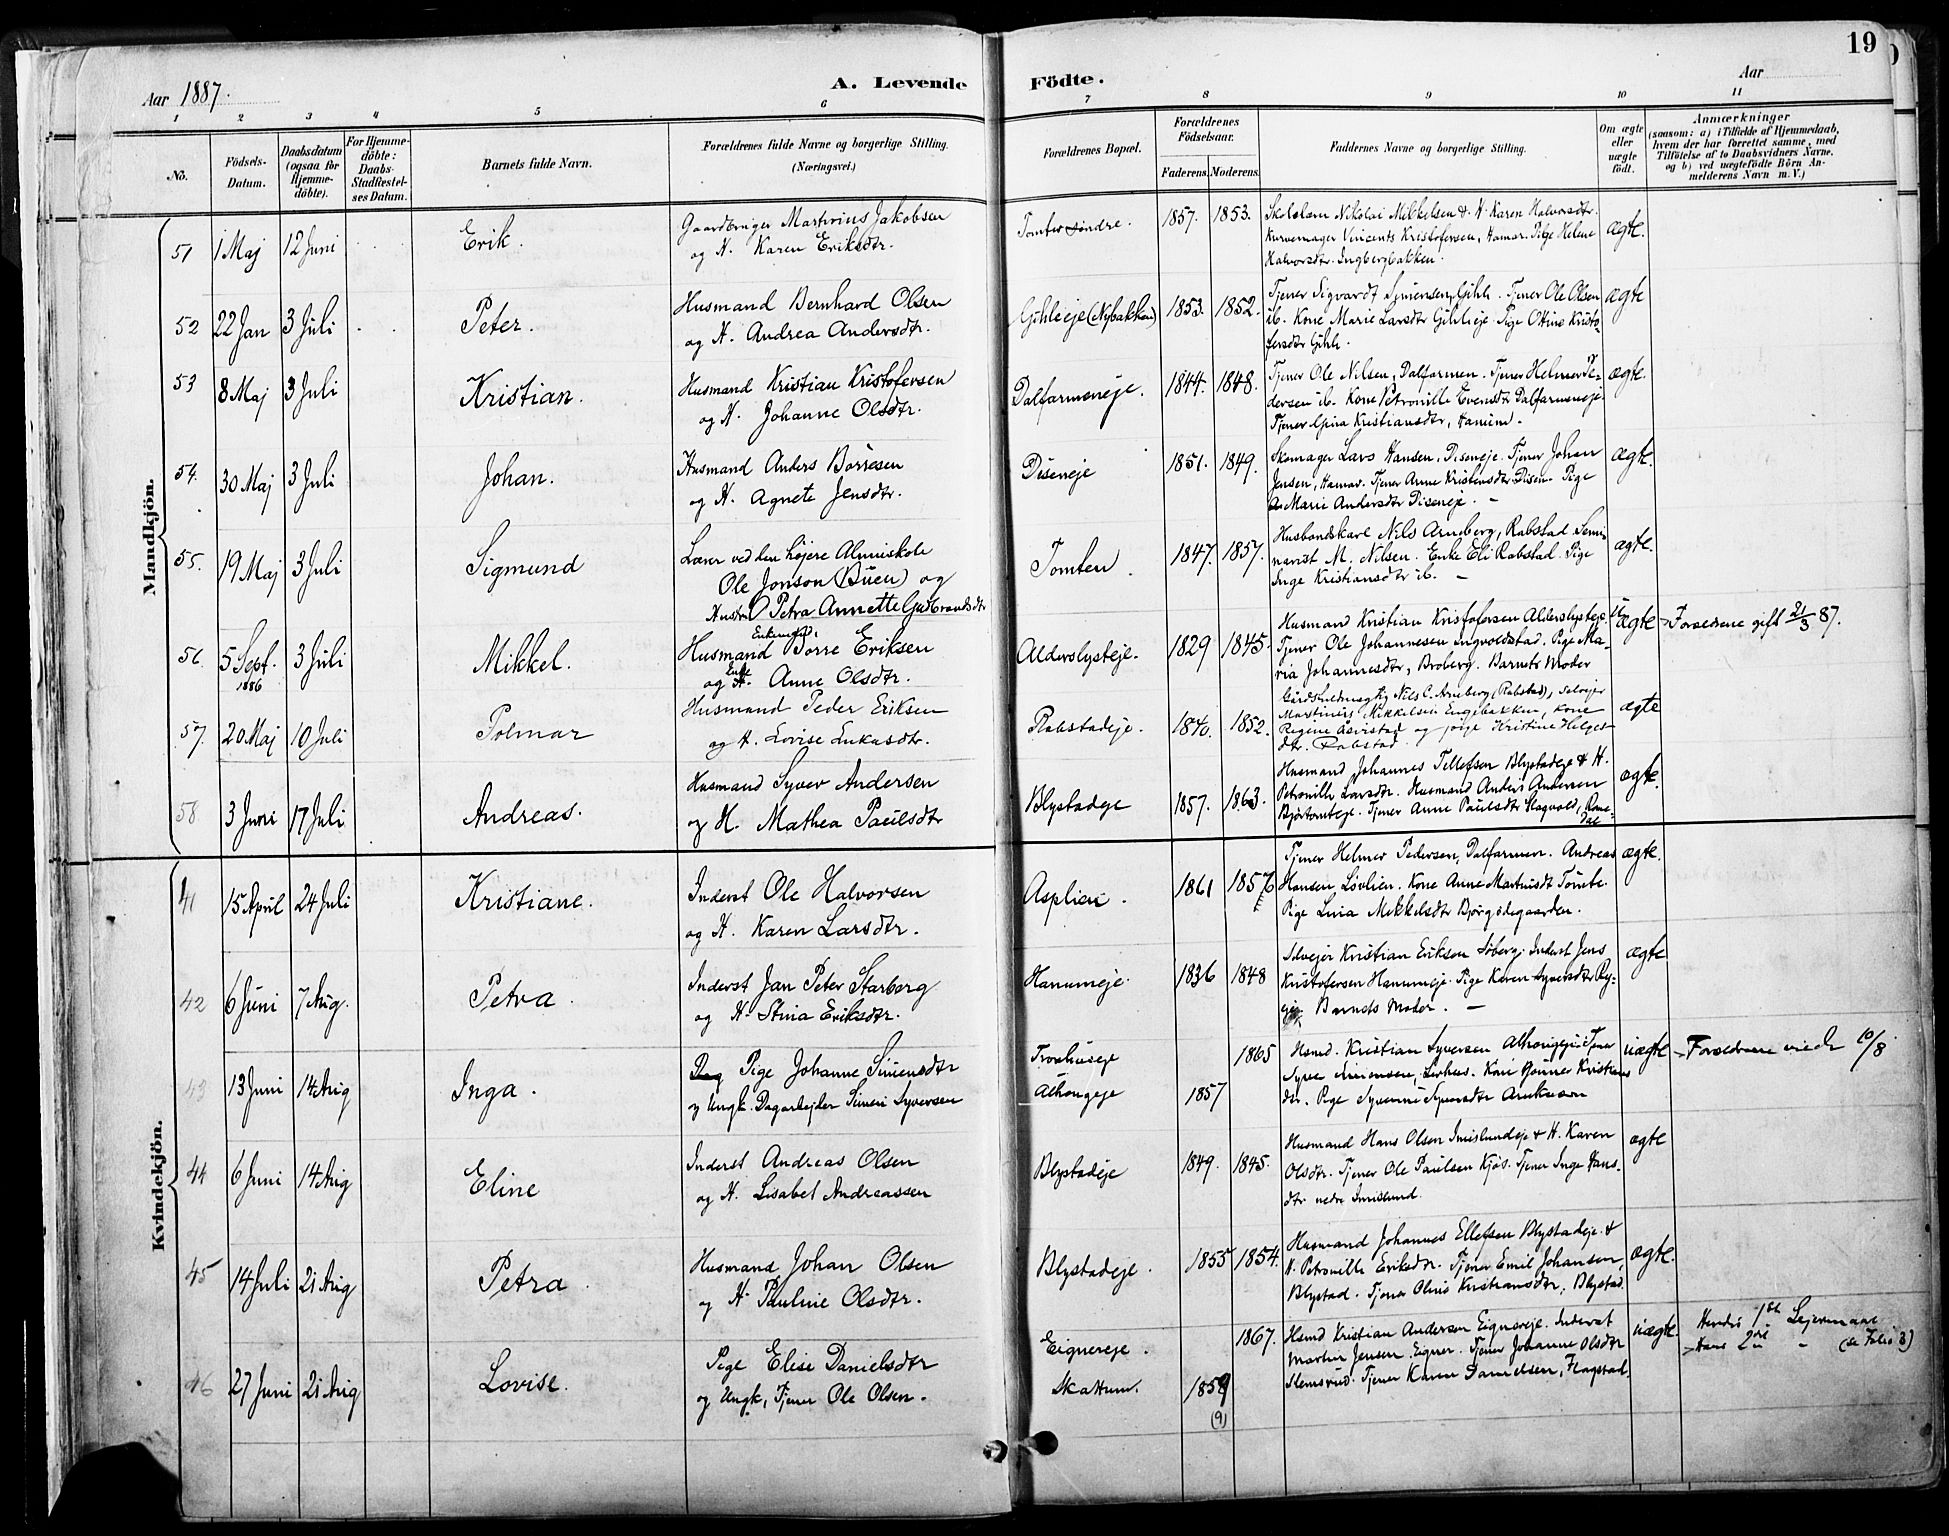 19
Aar 1887.
A. Levende Födte.
Aar
1 2 3 4 5 6 7 8 9 10 11
No.
Födsels-Datum.
Daabsdatum (ogsaa for Hjemme-döbte).
For Hjemme-döbte: Daabs-Stadfæstel-ses Datum.
Barnets fulde Navn.
Forældrenes fulde Navne og borgerlige Stilling. (Næringsvei.)
Forældrenes Bopæl.
Forældrenes Födselsaar.
Faderens. Moderens.
Faddernes Navne og borgerlige Stilling.
Om ægte eller uægte födt.
Anmærkninger
(saasom: a) i Tilfælde af Hjemmedaab,
hvem der har forrettet samme, med
Tilföielse af to Daabsvidners Navne,
og b) ved uægtefödte Börn An-
melderens Navn m. V.)
Mandkjön.
51 1 Maj 12 Juni Erik. Gaardbruger Martinius Jakobsen
og H. Karen Eriksdtr.
Tomter søndre. 1857. 1853.
Skolelærer Nikolai Mikkelsen & H. Karen Halvorsdtr.
Kurvemager Vincents Kristofersen, Hamar. Pige Helene
Halvorsdtr. Ingbergbakken.
ægte.
52 22 Jan 3 Juli Peter. Husmand Bernhard Olsen
og H. Andrea Andersdtr.
Gihleeje (Nybakken) 1853. 1852.
Tjener Sigvardt Simensen, Gihle. Tjener Ole Olsen
ib. Kone Marie Larsdtr Gihleeje. Pige Ottine Kristo-
fersdtr Gihle.
ægte
53 8 Maj 3 Juli Kristian. Husmand Kristian Kristofersen
og H. Johanne Olsdtr.
Dalfarmeneje. 1844. 1848.
Tjener Ole Nilsen, Dalfarmen. Tjener Helmer Pe-
dersen ib. Kone Petronille Evensdtr Dalfarmeneje.
Tjener Gina Kristiansdtr,
ægte.
54. 30 Maj 3 Juli Johan. Husmand Anders Børresen
og H. Agnete Jensdtr.
Diseneje 1851. 1849.
Skomager Lars Hansen, Diseneje. Tjener Johan
Jensen, Hamar. Tjener Anne Kristensdtr Disen. Pige
Marie Andersdtr Diseneje. —
ægte.
55. 19 Maj 3 Juli Sigmund Lærer ved den højere Almuskole
Ole Jonson (Buen) og
Hustru Petra Annette Gudbrandsdtr
Tomten. 1847. 1857.
Husbondskarl Nils Arneberg, Rabstad. Semi-
narist M. Nilsen. Enke Eli Rabstad. Pige
Inge Kristiansdtr ib. —
ægte.
56. 5 Sept. 1886 3 Juli Mikkel. Enkemand, Husmand Børre Eriksen
og Enke H. Anne Olsdtr.
Alderslysteje. 1829 1845.
Husmand Kristian Kristofersen Alderslysteje.
Tjener Ole Johannesen Ingvoldstad. Pige Ma-
ria Johannesdtr, Broberg. Barnets Moder
uægte Forældrene gift 21/3 87.
57. 20 Maj 10 Juli Polmar Husmand Peder Eriksen
og H. Lovise Lukasdtr.
Rabstadeje. 1840. 1852.
Nils C. Arneberg (Rabstad), Selvejer
Martinus Mikkelsen Engebakken, kone
Regine og pige Kristine Helges-
dtr. Rabstad
ægte
58 3 Juni 17 Juli Andreas. Husmand Syver Andersen
og H. Mathea Paulsdtr
Blystadeje 1857. 1863.
Husmand Johannes Tellefsen Blystadeje & H.
Petronille Larsdtr. Husmand Anders Andersen
Bjørtomteje. Tjener Anne Paulsdtr
ægte.
Kvindekjön.
41 15 April 24 Juli Kristiane. Inderst Ole Halvorsen
og H. Karen Larsdtr.
Asplien. 1861 1857
Tjener Helmer Pedersen, Dalfarmen. Andreas
Hansen Løvlien. Kone Anne Martinsdtr Tomte.
Pige Lina Mikkelsdtr Bjørgødegaarden.
ægte.
42 6 Juni 7 Aug. Petra Inderst Jan Peter Starberg
og H. Stina Eriksdtr.
Hanumeje. 1836 1848
Selvejer Kristian Eriksen Søberg. Inderst Jens
Kristofersen Hanumeje. Pige Karen Syversdtr
Barnets Moder. —
ægte
43 13 Juni 14 Aug Inga. Pige Johanne Simensdtr
og Ungk. Dagarbejder Simen Syversen
Tronhuseje
Alhougeje 1857 1865
Hsmd. Kristian Syversen Alhougeje. Tjener
Syver Simensen, Kone Kristians
dtr. Pige Syversdtr
uægte Forældrene viede 10/8
44 6 Juni 14 Aug Eline Inderst Andreas Olsen
og H. Lisabet Andreassen
Blystadeje 1849. 1845.
Husmand Hans Olsen Imislundeje & H. Karen
Olsdtr. Tjener Ole Paulsen Kjøs. Tjener Inge Hans-
dtr nedre Imislund.
ægte
45 14 Juli 21 Aug Petra Husmand Johan Olsen
og H. Pauline Olsdtr.
Blystadeje. 1855 1854.
Husmand Johannes Ellefsen Blystadeje &
H. Petronille Eriksdtr. Tjener Emil Johansen,
Blystad. Tjener Oline Kristiansdtr, Blystad.
ægte.
46 27 Juni 21 Aug Lovise. Pige Elise Danielsdtr
og Ungk, Tjener Ole Olsen.
Eignereje.
Skattum. 1859 (9) 1867.
Hsmd Kristian Andersen Eignereje. Inderst
Martin Jensen Eigner. Tjener Johanne Olsdtr
Slemsrud. Tjener Karen Danielsen, Flagstad.
uægte. Hendes 1ste Lejermaal
Hans 2det " (se Folio 3)